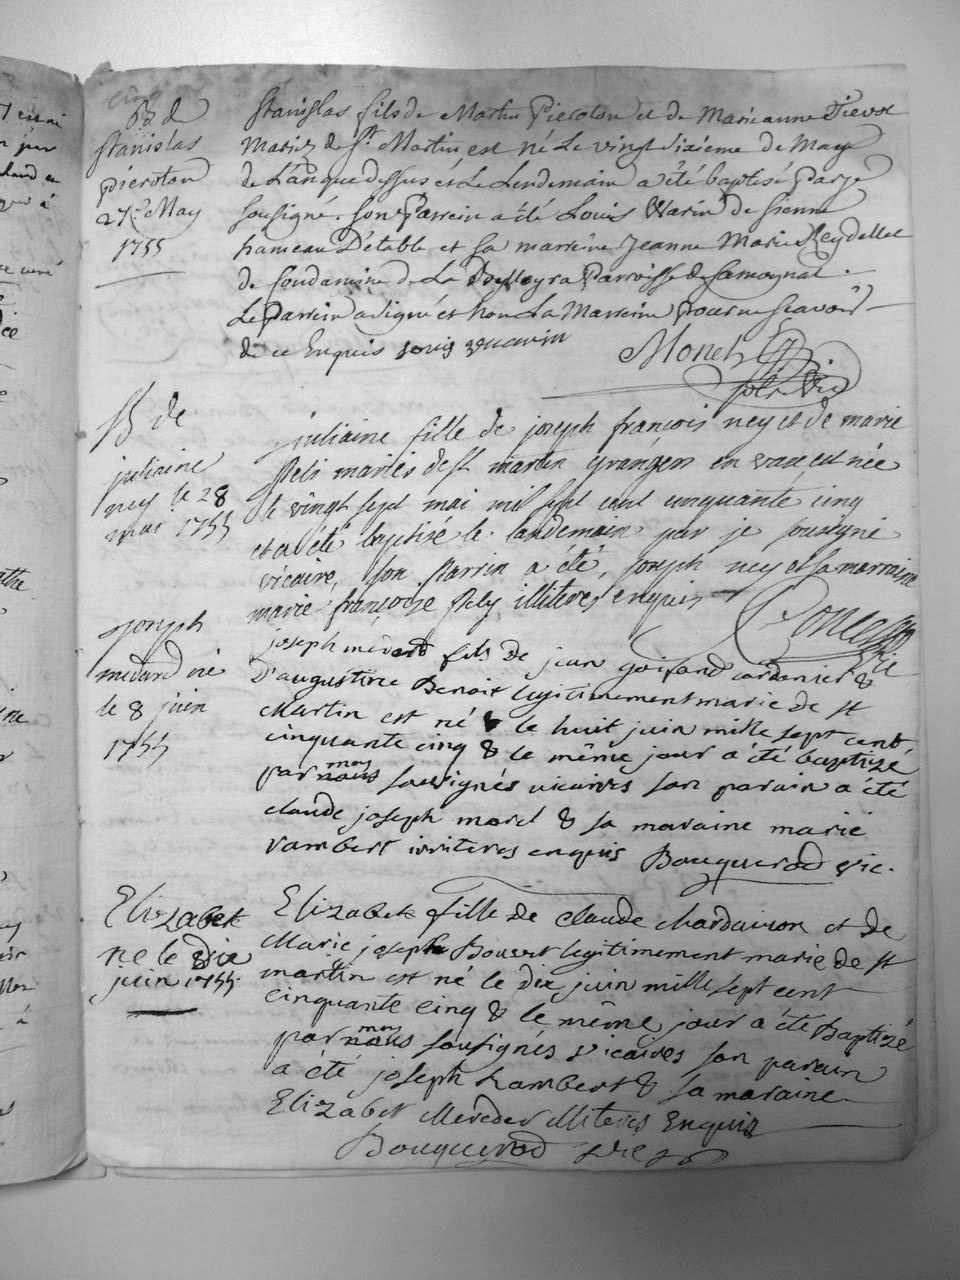 B d
Stanislas
pieroton
27e May
1755
Stanislas fils de Martin Pieroton et de Marieanne Tievot
Mariez de St Martin est né Le vingt sixieme de May
de L'anque dessus et Le Lendemain a été baptisé Par je
sousigné. son Parrein a été Louis Warin de sienne
hameau D'étable et sa marreine Jeanne Marie Reydellet
de Condamine de La Parroisse de Samognat
Le Parrein a signé et non La Marreine Pour ne scavoir
de ce Enquis Louis
Monet
B de
juliaine
ney le 28
mai 1755
juliaine fille de joseph françois ney et de marie
mariés de st martin grangers en est née
le vingt sept mai mil sept cent cinquante cinq
et a été baptisé le landemain par je sousigné
vicaire, son parrin a été, joseph ney et sa marraine
marie françoise illiteres enquis
vic
joseph
medard né
le 8 juin
1755
joseph medard fils de jean goifand cordonier &
D'augustine Benoit legitimement marie de st
Martin est né le huit juin mille sept cent
cinquante cinq & le même jour a été baptizé
par moy sousignés vicaires son parain a été
claude joseph morel & sa maraine marie
rambert enquis Bouquerod vic.
Elizabet
né le dix
juin 1755
Elizabet fille de claude chardaison et de
Marie joseph Bouvet legitimement marie de st
martin est né le dix juin mille sept cent
cinquante cinq & le même jour a été Baptizé
par moy sousignes vicaires son parain
a été joseph Lambert & sa maraine
Elizabet Mercder illiteres Enquis
Bouquerod vic